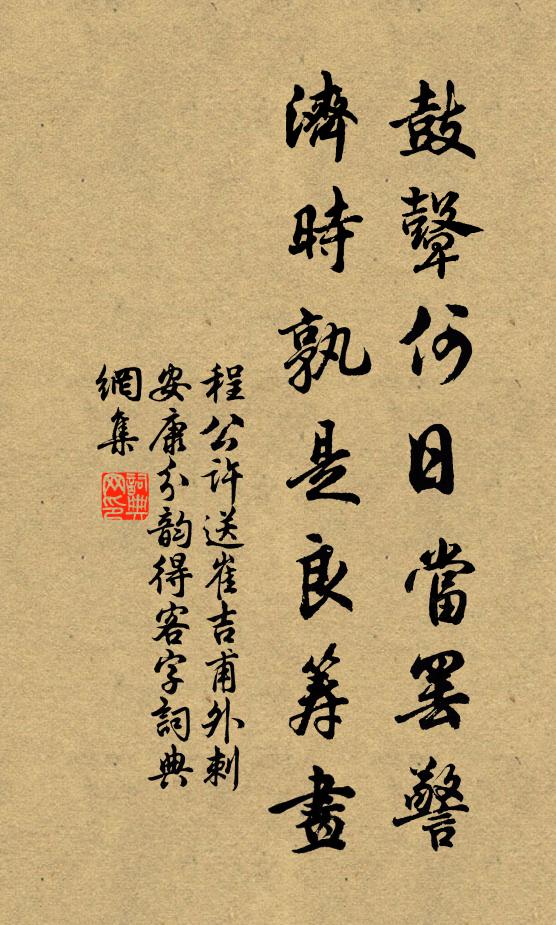 鼓鼙何日當罷警
濟時孰是良筹畫
程公許送崔吉甫外刺
安康分韻得客字詞典
網集
詞典
网印